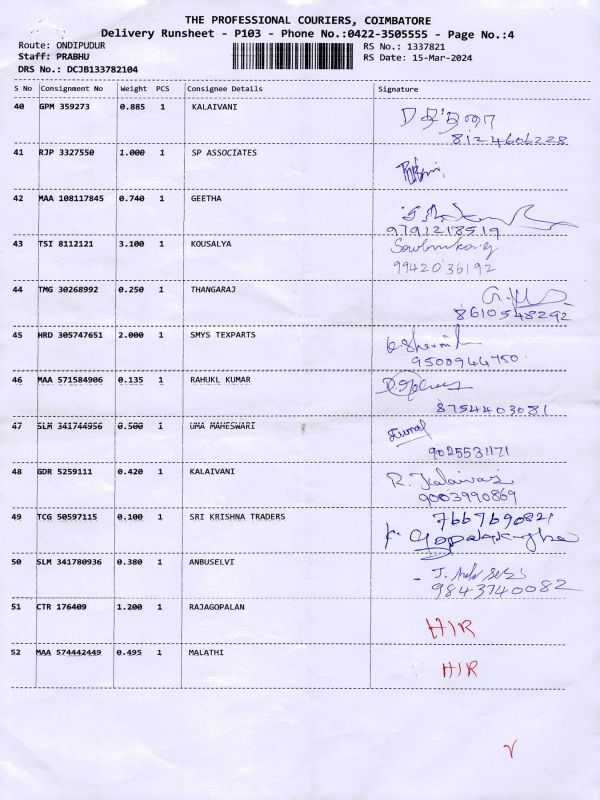 THE PROFESSIONAL COURIERS, COIMBATORE
Delivery Runsheet - P103 - Phone No.:0422-3505555 - Page No.:4
Route: ONDIPUDUR
RS No.: 1337821
Staff: PRABHU
RS Date: 15-Mar-2024
DRS No.: DCJB133782104
S No Consignment No Weight PCS Consignee Details Signature
40 GPM 359273 0.885 1 KALAIVANI
8124606228
41 RJP 3327550 1.000 1 SP ASSOCIATES
42 MAA 108117845 0.740 1 GEETHA
9791218519
43 TSI 8112121 3.100 1 KOUSALYA
9942036192
44 TMG 30268992 0.250 1 THANGARAJ
8610548292
45 HRD 305747651 2.000 1 SMYS TEXPARTS
9500944750
46 MAA 571584906 0.135 1 RAHUKL KUMAR
8754403081
47 SLM 341744956 0.500 1 UMA MAHESWARI
9025531171
48 GDR 5259111 0.420 1 KALAIVANI
R. Kalaivani
9003990869
49 TCG 50597115 0.100 1 SRI KRISHNA TRADERS
7667690821
50 SLM 341780936 0.380 1 ANBUSELVI
9843740082
51 CTR 176409 1.200 1 RAJAGOPALAN
HIR
52 MAA 574442449 0.495 1 MALATHI
HIR